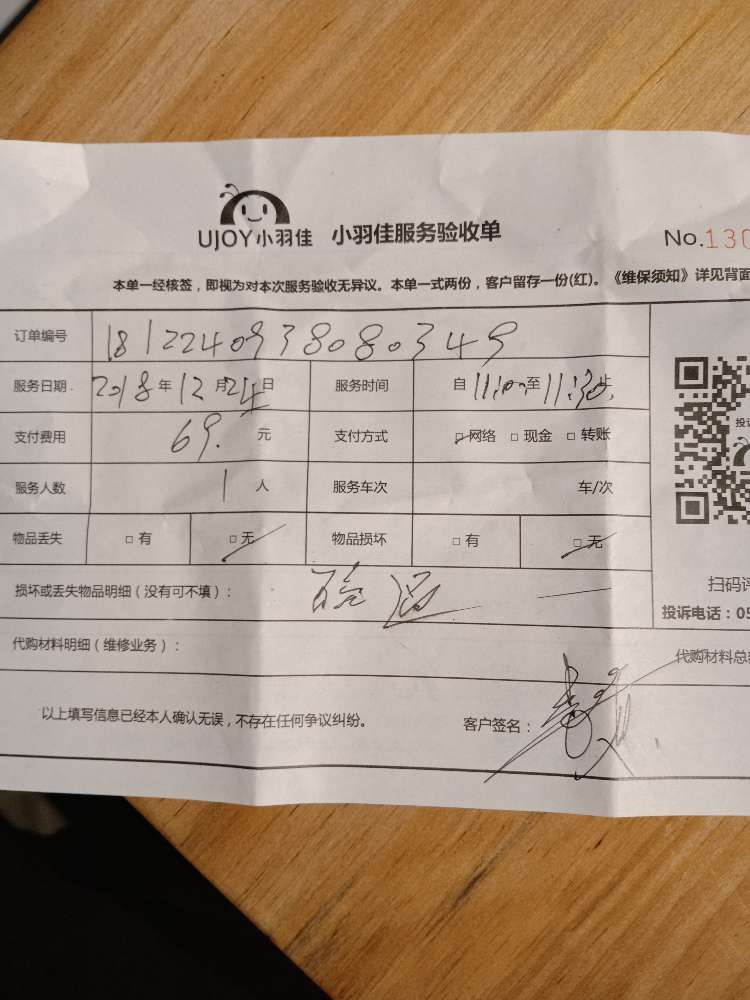 UJOY小羽佳 小羽佳服务验收单 No.130
本单一经核签，即视为对本次服务验收无异议。本单一式两份，客户留存一份(红)。《维保须知》详见背面
订单编号 1812240938080349
服务日期 2018年12月24日 服务时间 自11:00至11:30止
支付费用 69.元 支付方式 □网络 □现金 □转账
服务人数 1人 服务车次 车/次
物品丢失 □有 □无 物品损坏 □有 □无
损坏或丢失物品明细（没有可不填）：
扫码评
投诉电话：05
代购材料明细（维修业务）： 代购材料总
以上填写信息已经本人确认无误，不存在任何争议纠纷。 客户签名：